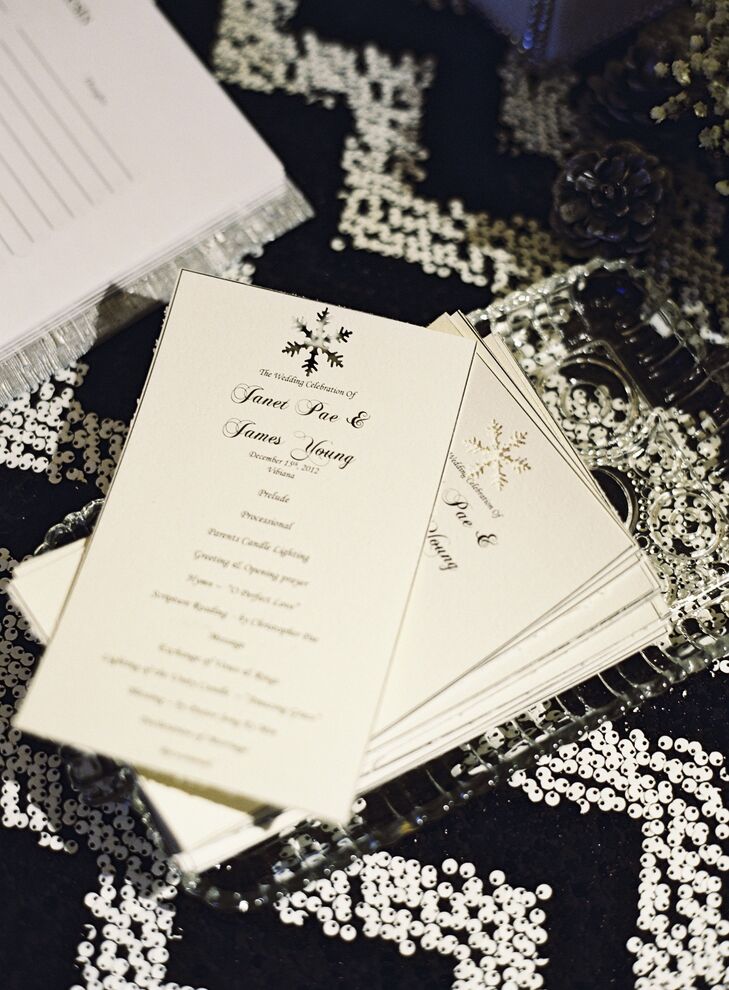 The Wedding Celebration Of
Janet Pae &
James Young
December 15th, 2012
Vibiana
Prelude
Processional
Parents Candle Lighting
Greeting & Opening prayer
Hymn – "O Perfect Love"
Scripture Reading – by Christopher Pae
Message
Exchange of Vows & Rings
Lighting of the Unity Candle – "Amazing Grace"
Wedding Celebration Of
Pae &
Young